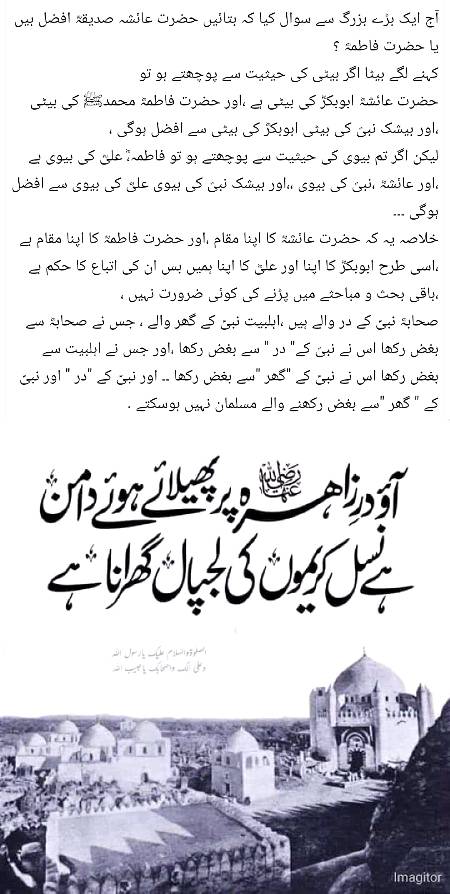 آج ایک بڑے بزرگ سے سوال کیا کہ بتائیں حضرت عائشہ صدیقہؓ افضل ہیں
یا حضرت فاطمہؓ ؟
کہنے لگے بیٹا اگر بیٹی کی حیثیت سے پوچھتے ہو تو
حضرت عائشہؓ ابوبکرؓ کی بیٹی ہے ،اور حضرت فاطمہؓ محمدﷺ کی بیٹی
،اور بیشک نبیؐ کی بیٹی ابوبکرؓ کی بیٹی سے افضل ہوگی ،
لیکن اگر تم بیوی کی حیثیت سے پوچھتے ہو تو فاطمہؓ، علیؓ کی بیوی ہے
،اور عائشہؓ ،نبیؐ کی بیوی ،،اور بیشک نبیؐ کی بیوی علیؓ کی بیوی سے افضل
ہوگی ...
خلاصہ یہ کہ حضرت عائشہؓ کا اپنا مقام ،اور حضرت فاطمہؓ کا اپنا مقام ہے
،اسی طرح ابوبکرؓ کا اپنا اور علیؓ کا اپنا ہمیں بس ان کی اتباع کا حکم ہے
،باقی بحث و مباحثے میں پڑنے کی کوئی ضرورت نہیں ،
صحابہؓ نبیؐ کے در والے ہیں ،اہلبیت نبیؐ کے گھر والے ، جس نے صحابہؓ سے
بغض رکھا اس نے نبیؐ کے" در " سے بغض رکھا ،اور جس نے اہلبیت سے
بغض رکھا اس نے نبیؐ کے "گھر "سے بغض رکھا .. اور نبیؐ کے "در " اور نبیؐ
کے " گھر "سے بغض رکھنے والے مسلمان نہیں ہوسکتے .
آؤ درِ زاھرہ رضی اللہ عنہا پر پھیلائے ہوئے دامن
ہے نسل کریموں کی لجپال گھرانا ہے
الصلوۃ والسلام علیک یارسول اللہ
وعلی آلک واصحابک یاحبیب اللہ
Imagitor